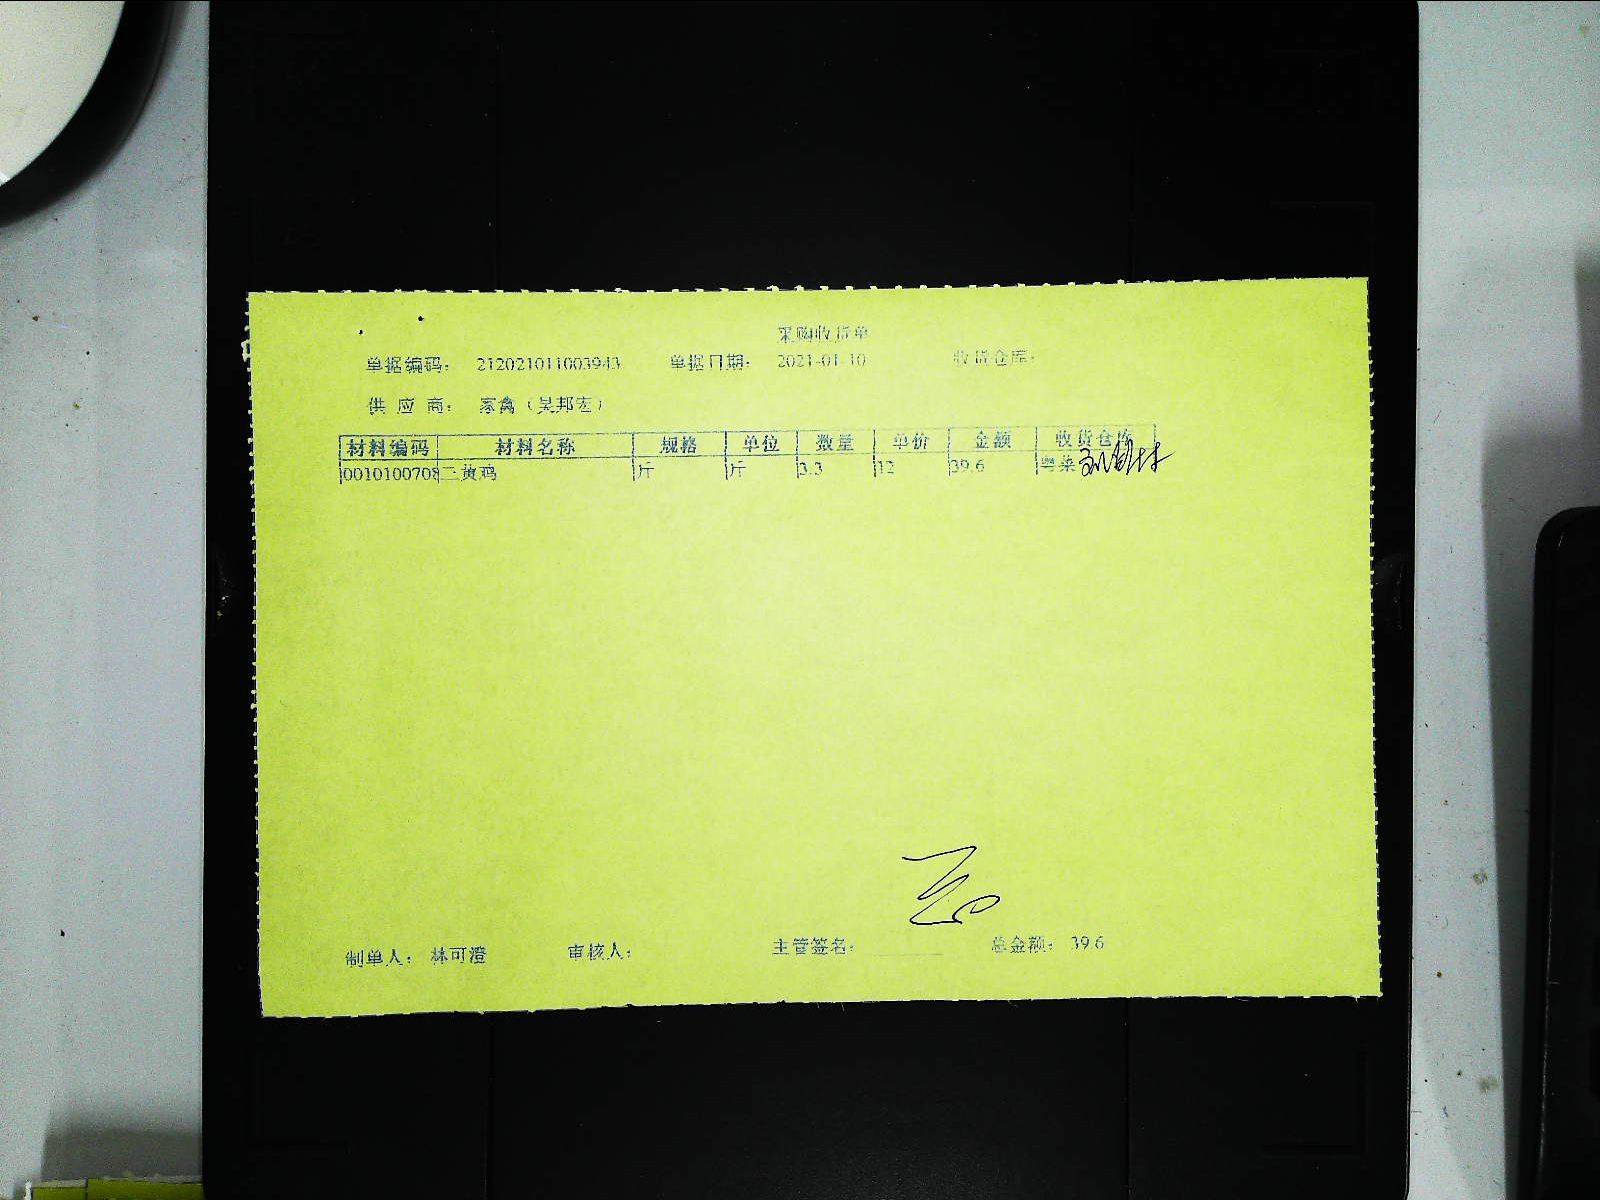 采购收货单
单据编码： 212021011003943 单据日期： 2021-01-10 收货仓库：
供 应 商： 家禽（吴邦宏）
材料编码 材料名称 规格 单位 数量 单价 金额 收货仓库
0010100708 二黄鸡 斤 斤 3.3 12 39.6 粤菜
制单人： 林可澄 审核人： 主管签名： 总金额： 39.6